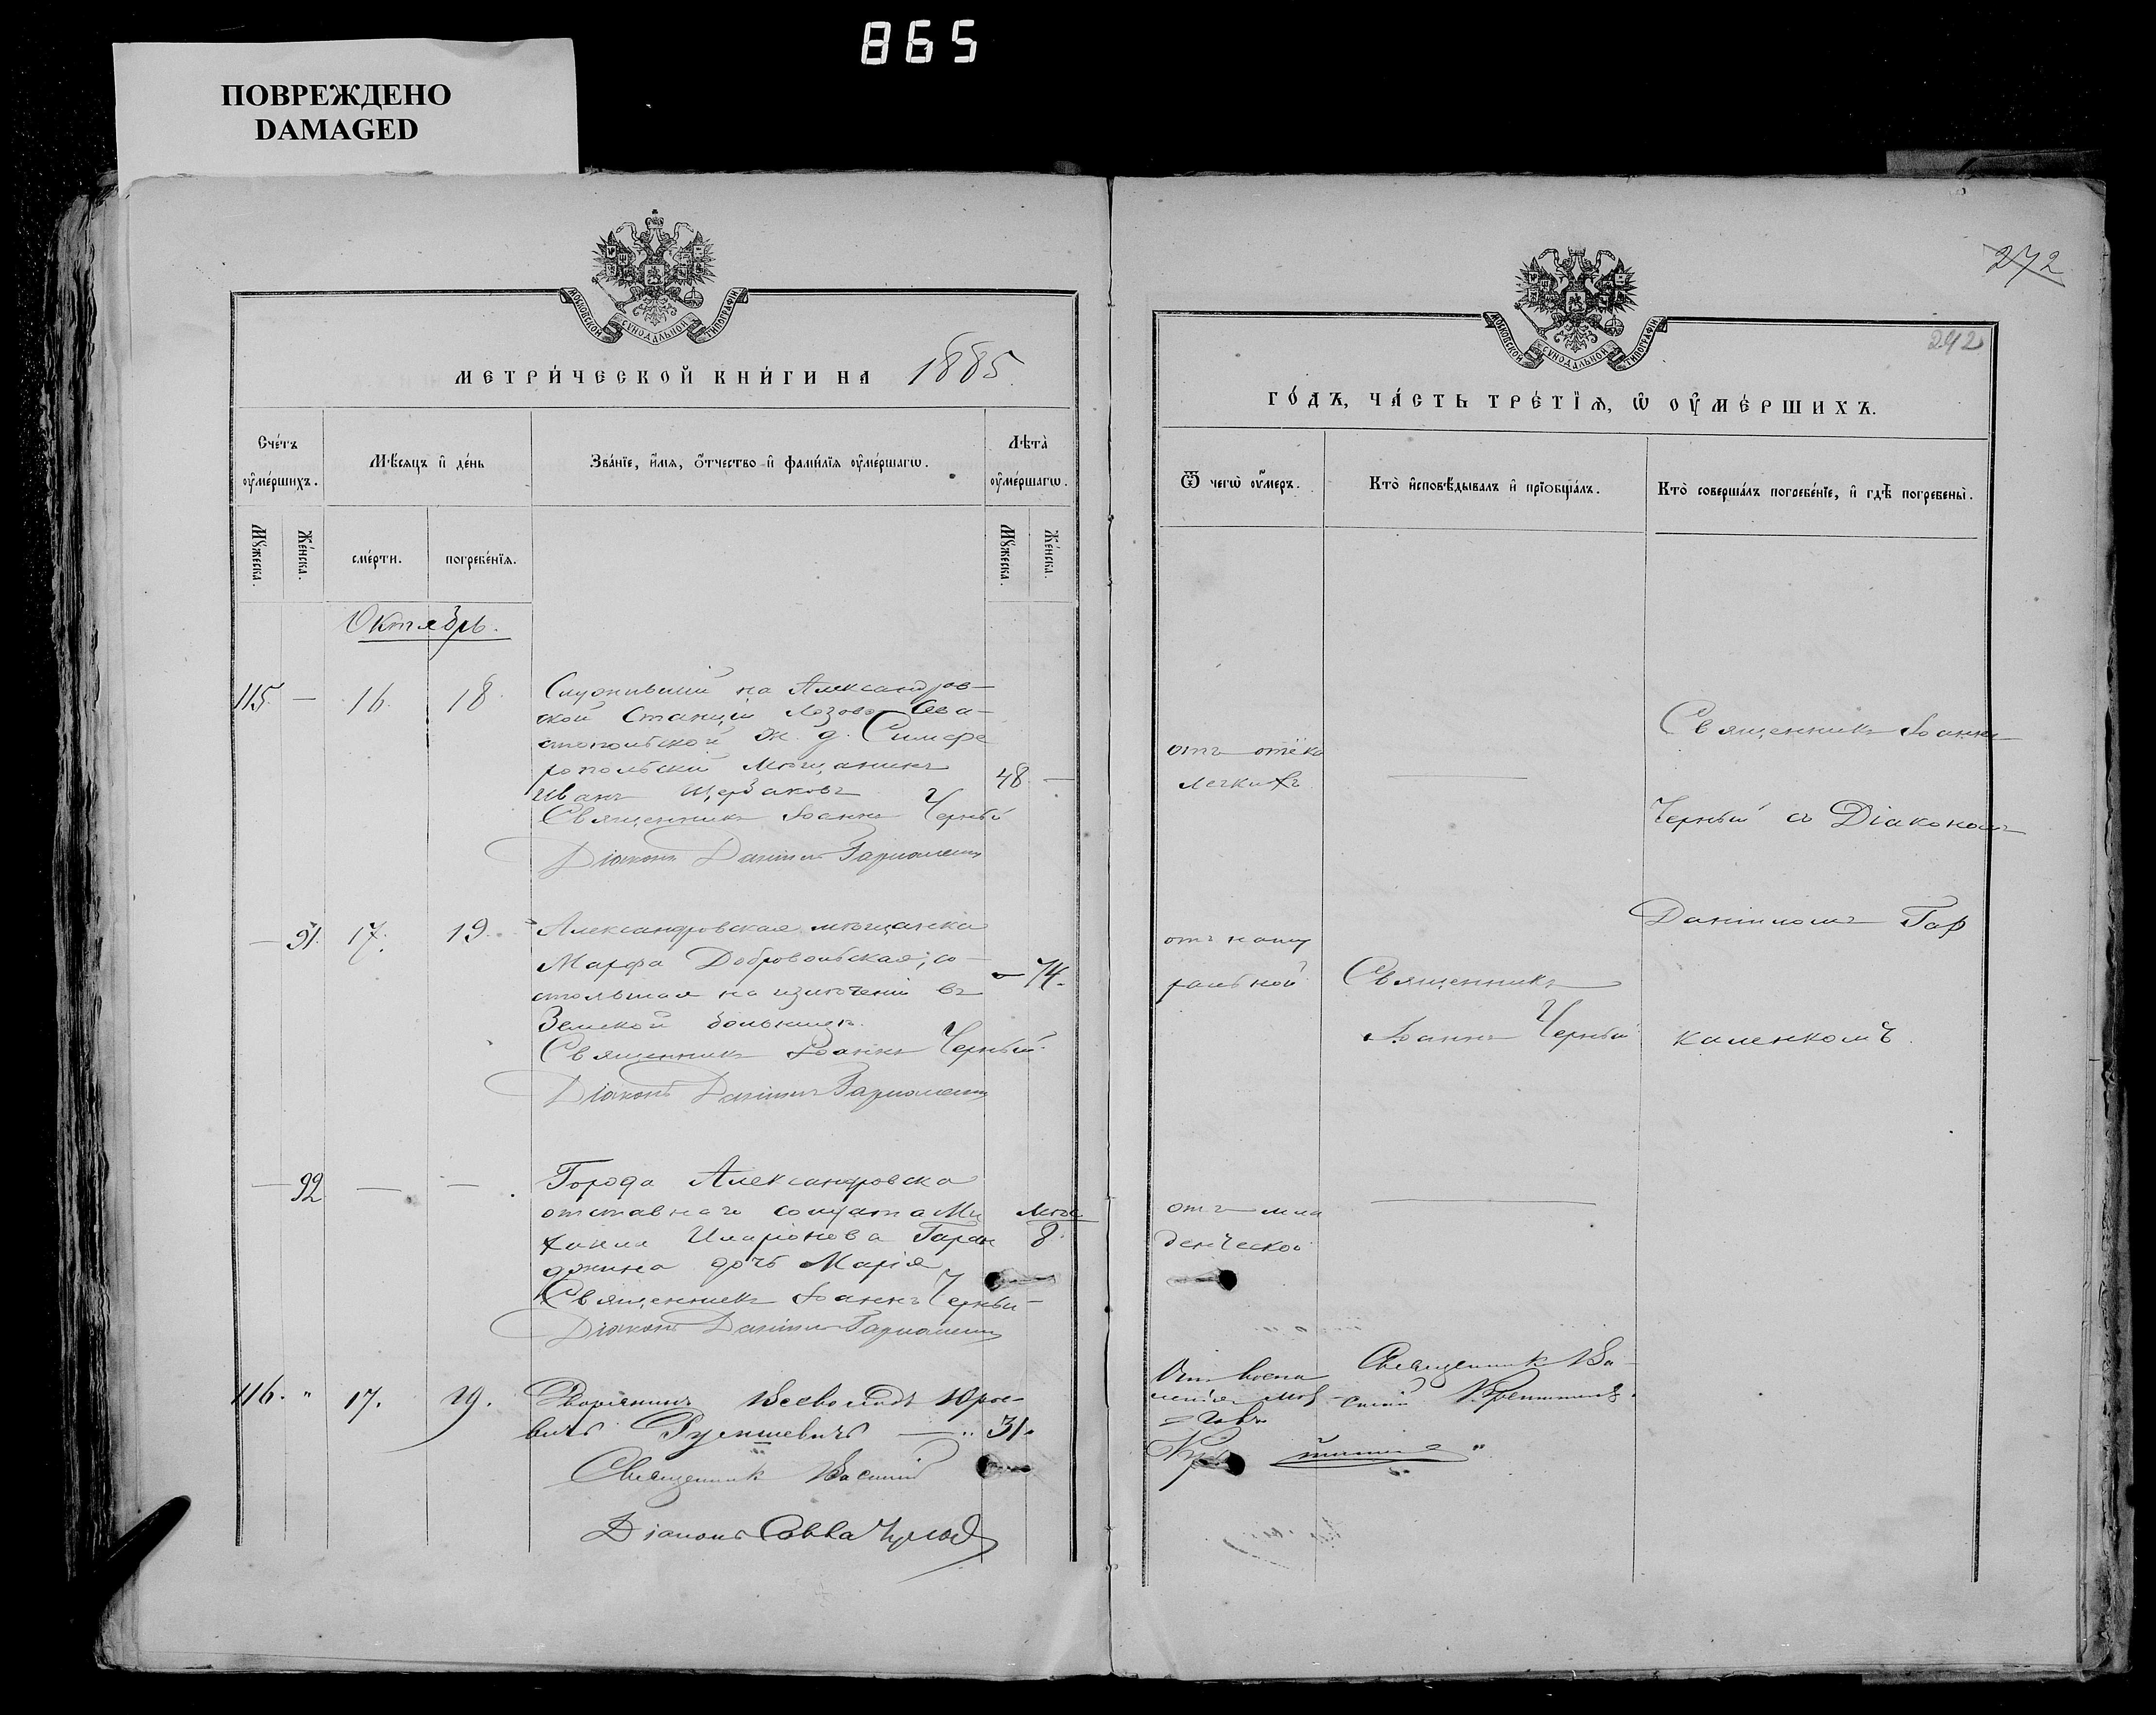 865
ПОВРЕЖДЕНО
DAMAGED
МОСКОВСКОЙ СѴНОДАЛЬНОЙ ТИПОГРАФІИ
МЕТРИ́ЧЕСКОЙ КНИ́ГИ НА 1885.
Сче́тъ ᲂу҆ме́ршихъ.
Мѣ́сяцъ и҆ де́нь
Зва́нїе, и҆́мѧ, ѻ҆́тчество и҆ фами́лїѧ ᲂу҆ме́ршагѡ.
Лѣта̀ ᲂу҆ме́ршагѡ.
Мꙋ́жеска.
Же́нска.
сме́рти.
погребе́нїѧ.
Мꙋ́жеска.
Же́нска.
Октябрь.
115. — 16. 18.
Служившій на Александров-
ской Станціи Лозово-Сева-
стопольской ж. д. Симфе
ропольскій мѣщанинъ
Иванъ Щербаковъ
48. —
Священникъ Іоаннъ Черный
Діаконъ Даніилъ
— 91. 17. 19.
Александровская мѣщанка
Марфа Добровольская, со-
стоявшая на излѣченіи въ
Земской больницѣ.
— 74.
Священникъ Іоаннъ Черный.
Діаконъ Даніилъ
— 92 — —
Города Александровска
отставнаго солдата Ми
хаила Иларіонова Таран
дочь Марія
Мѣс
8.
Священникъ Іоаннъ Черный
Діаконъ Даніилъ
116. " 17. 19.
Дворянинъ Всеволодъ Юрье-
вичъ
— .. 31.
Священникъ Василій
Діаконъ Савва
272
242
МОСКОВСКОЙ СѴНОДАЛЬНОЙ ТИПОГРАФІИ
ГО́ДЪ, ЧА́СТЬ ТРЕ́ТЇѦ, Ѡ҆ ОУ҆МЕ́РШИХЪ.
Ѿ чегѡ̀ ᲂу҆́меръ.
Кто̀ и҆сповѣ́дывалъ и҆ прїѡбща́лъ.
Кто̀ соверша́лъ погребе́нїе, и҆ гдѣ̀ погребены̀.
отъ отека
легкихъ
———
Священникъ Іоаннъ
Черный съ Діакономъ
Даніиломъ Гар
каленкомъ.
отъ нату
ральной
Священникъ
Іоаннъ Черный
отъ мла
денческой
———
Отъ воспа
ленія моз
говъ
Священникъ Ва-
силій